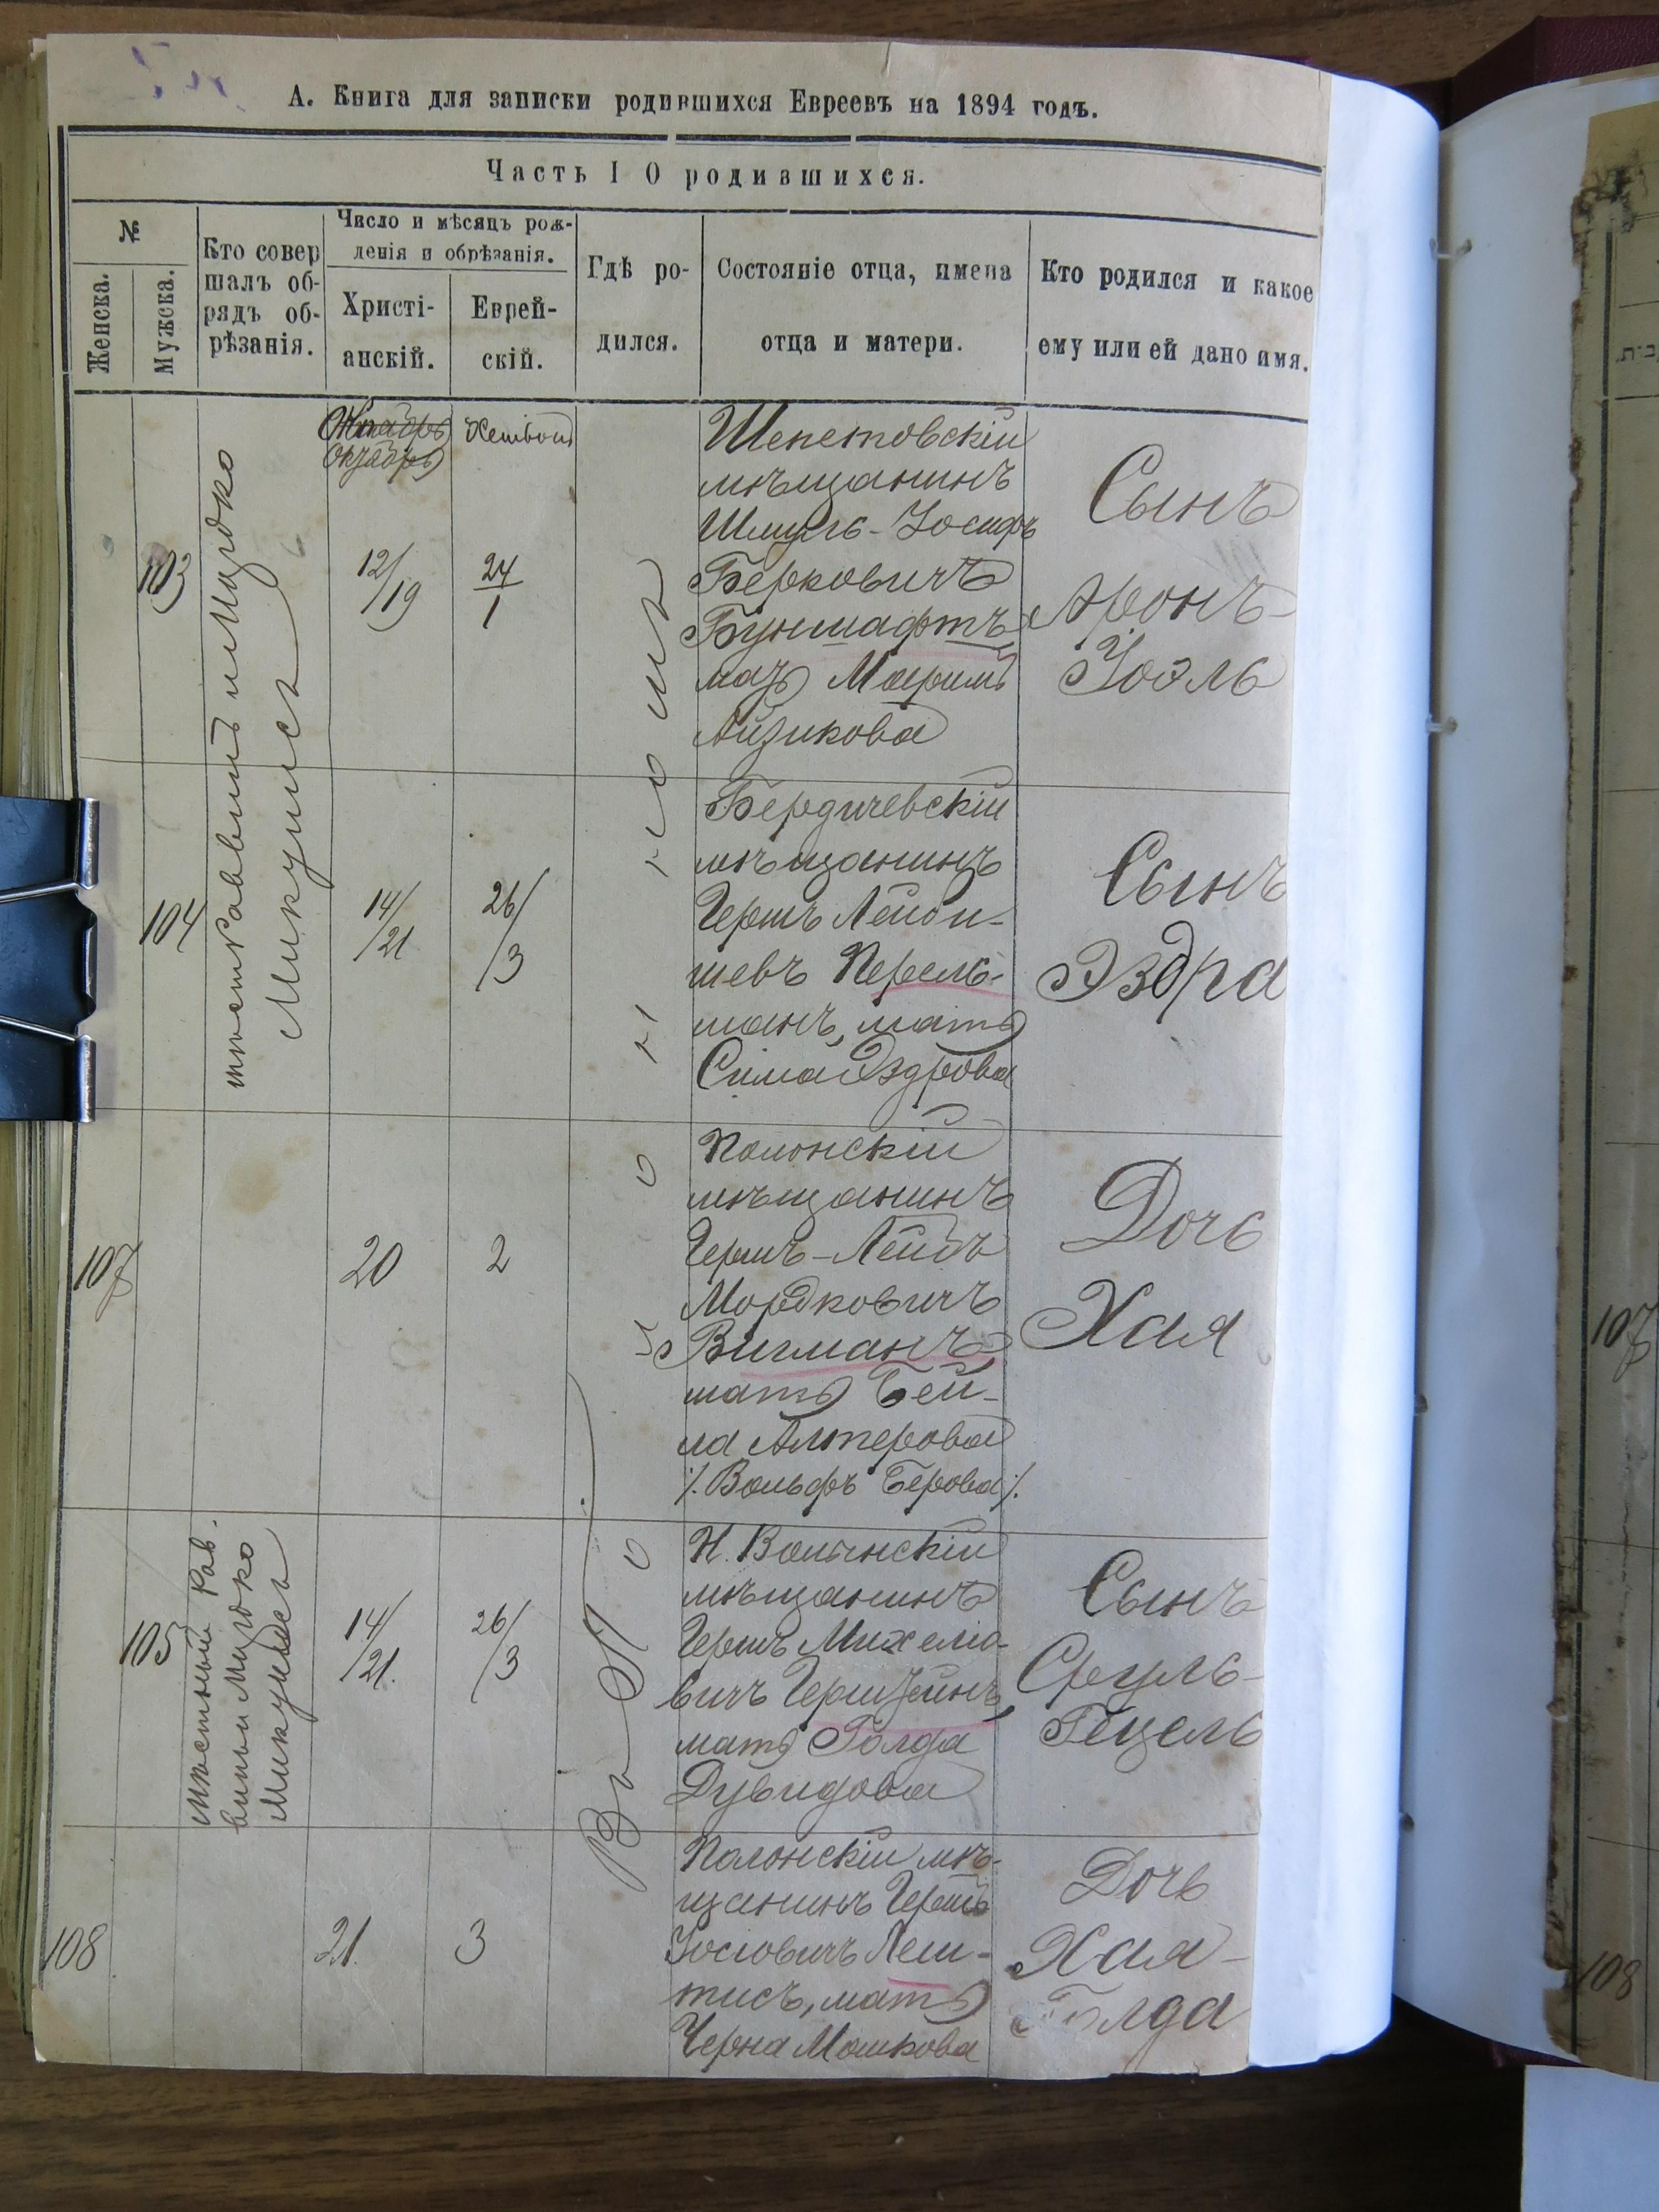 А. Книга для записки родившихся Евреевъ на 1894 годъ.
Часть I О родившихся.
№
Женска.
Мужска.
Кто совер
шалъ об-
рядъ об-
рѣзанія.
Число и мѣсяцъ рож-
денія и обрѣзанія.
Христі-
анскій.
Еврей-
скій.
Гдѣ ро-
дился.
Состояніе отца, имена
отца и матери.
Кто родился и какое
ему или ей дано имя.
Октябрь
Хешвон
103
12/19
24/1
Шепетовскій
мѣщанинъ
Шмуль-Іосифъ
Берковичъ
Буншафтъ
мать Маримъ
Айзикова
Сынъ
Аронъ-
Іоэль
104
14/21
26/3
Бердичевскій
мѣщанинъ
Гершъ Лейби-
шевъ Перель-
манъ, мать
Сима Эздрова
Сынъ
Эздра
Микулисъ
107
20
2
Полонскій
мѣщанинъ
Гершъ-Лейбъ
Мордковичъ
Вигманъ
мать Бей-
ла Алтерова
/. Вольфъ Берова /.
Дочь
Хая
105
Мѣстный Рав.
винъ Мордко
Микулисъ
14/21.
26/3
Н. Волынскій
мѣщанинъ
Гершъ Михелio-
вичъ Герцзейнъ,
мать Голда
Дувидова
Сынъ
Сруль-
Гецель
Въ
108
21.
3
Полонскій мѣ-
щанинъ Гершъ
Іосіовичъ Леш-
тисъ, мать
Черна Мошкова
Дочь
Хая-
Голда
107
108